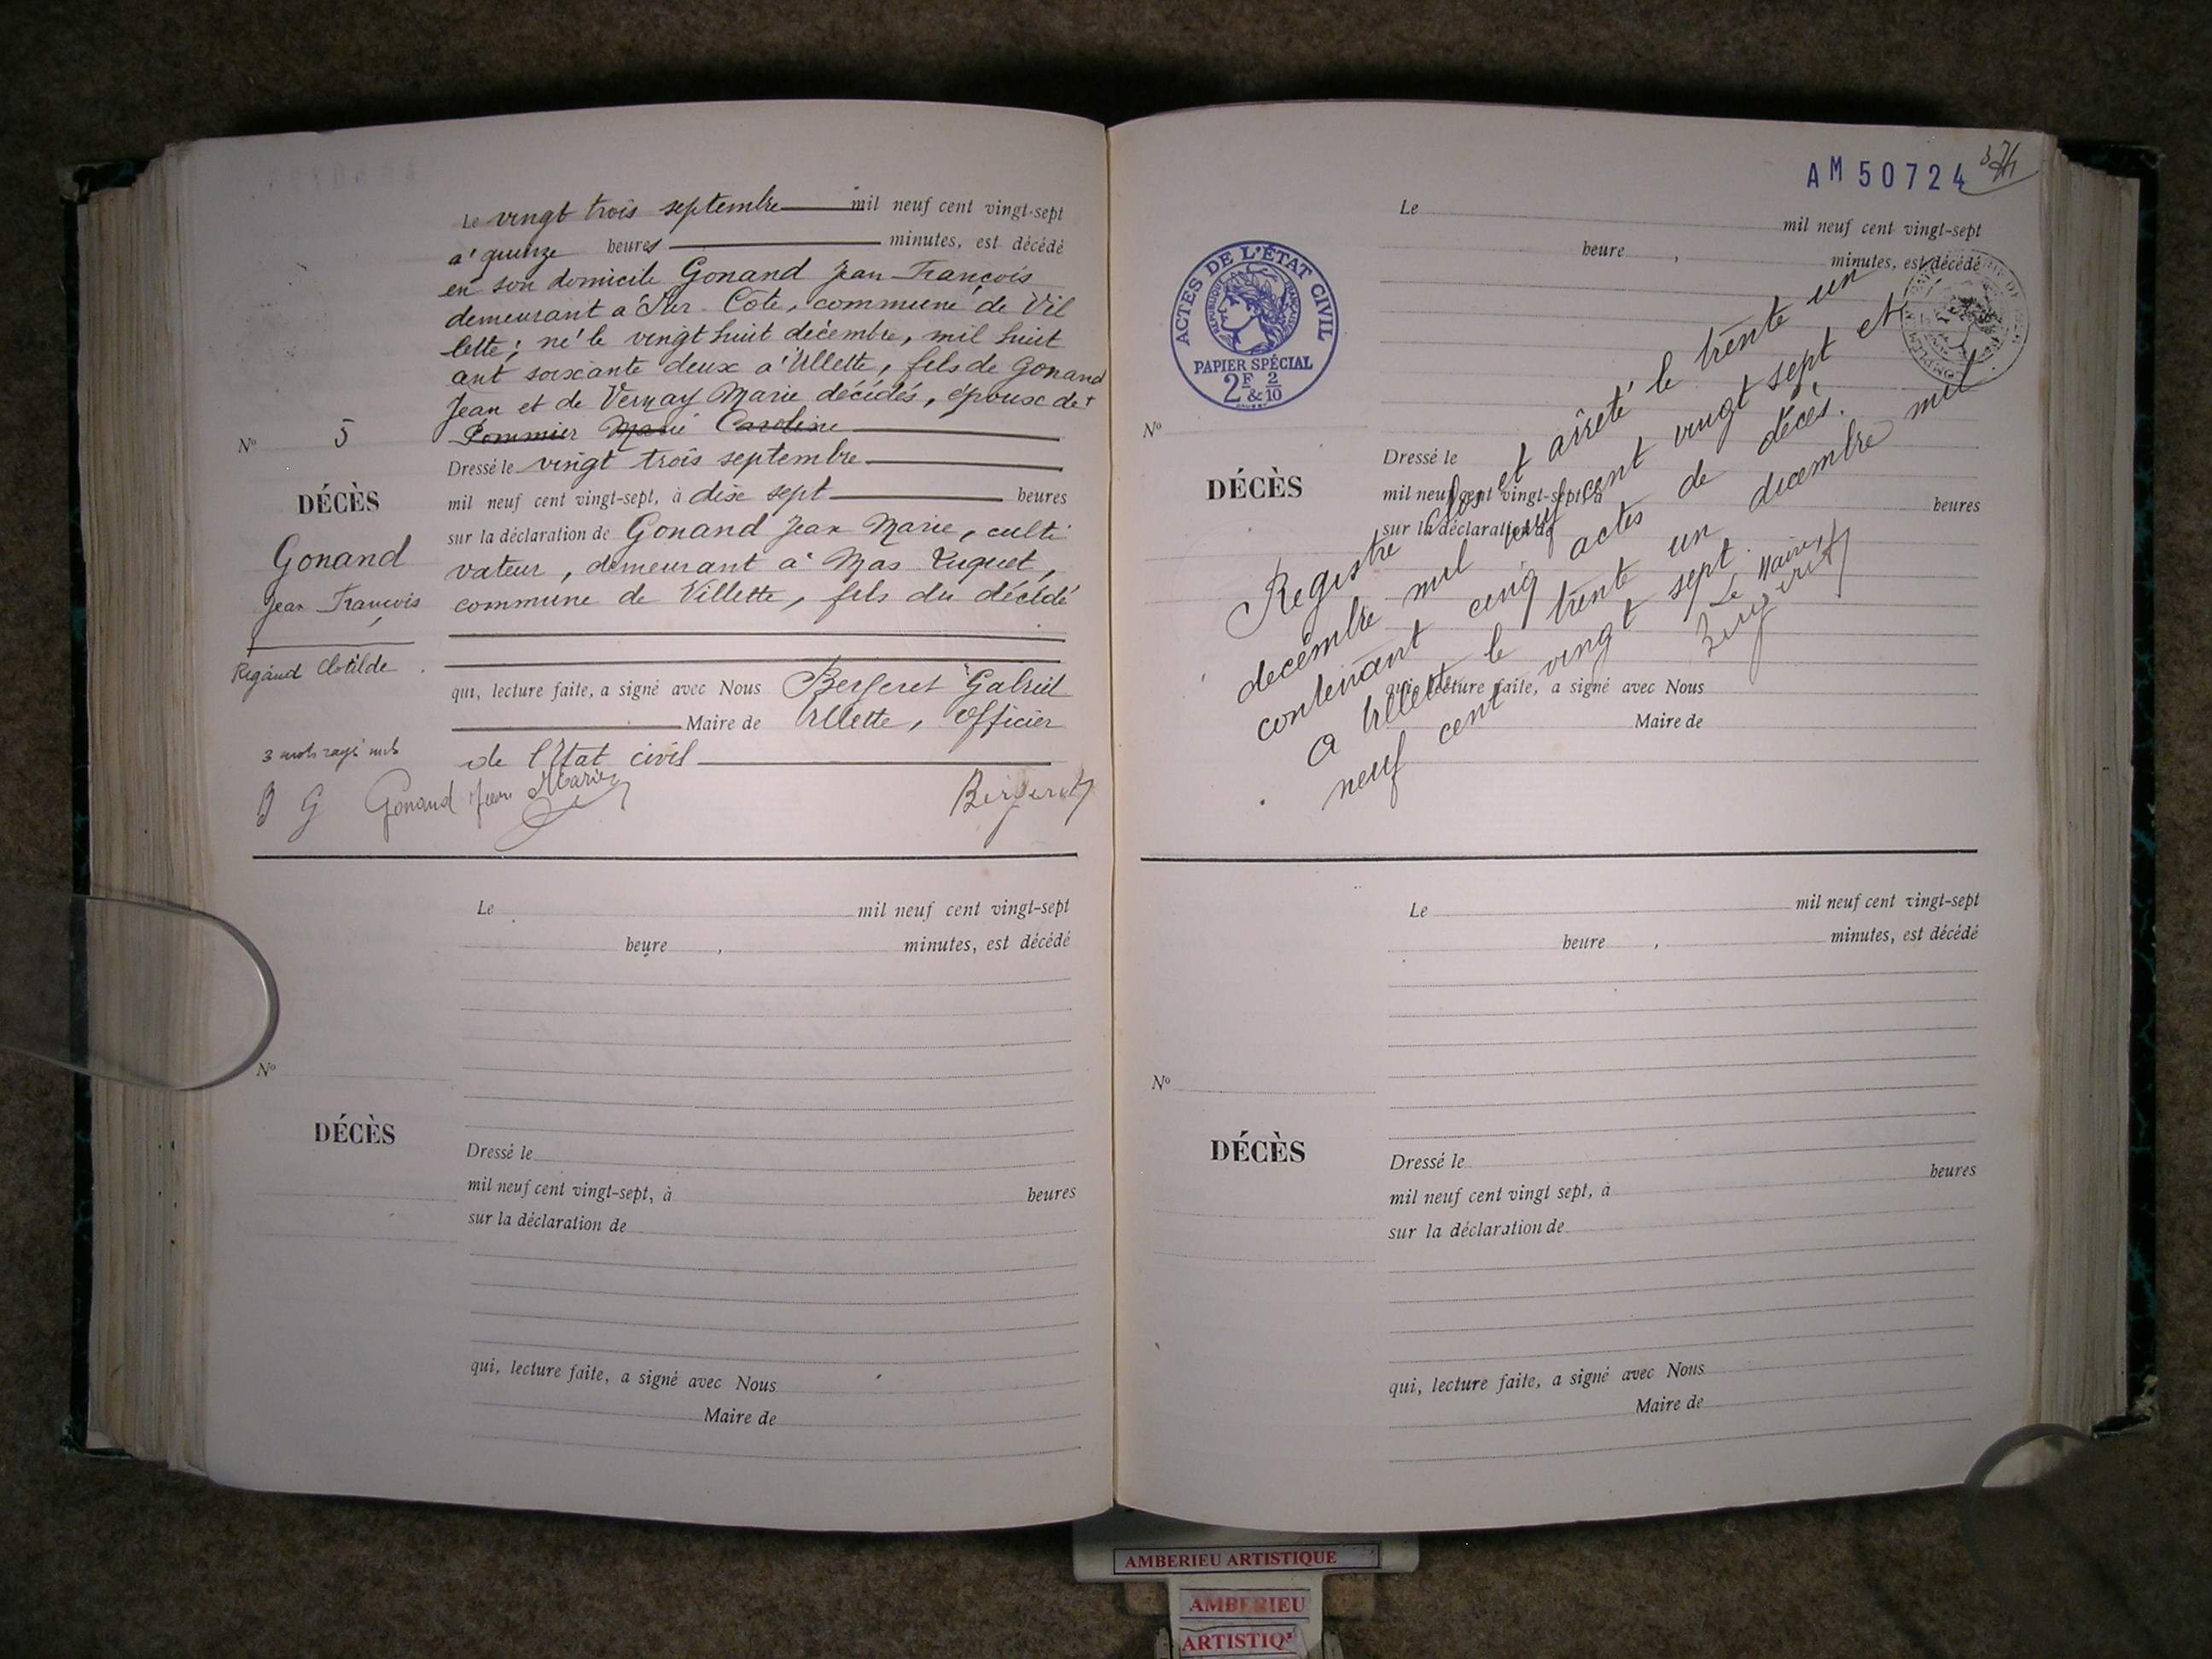 Le vingt trois septembre mil neuf cent vingt-sept
a' quinze heures minutes, est décédé
en son domicile Gonand Jean François
demeurant a Sur-Côte, commune de Vil
lette; né le vingt huit décembre, mil huit
ant soixante deux a Villette, fils de Gonand
Jean et de Vernay Marie décédés, époux de +
Pommier Marie Caroline
Nº 5
DÉCÈS
Gonand
Jean François
Rigaud Clotilde
3 mots rayé nuls
B G
Dressé le vingt trois septembre
mil neuf cent vingt-sept, à dix sept heures
sur la déclaration de Gonand Jean Marie, culti
vateur, demeurant à Mas Luquet,
commune de Villette, fils du décédé
qui, lecture faite, a signé avec Nous Bergeret Gabriel
Maire de Villette, Officier
de l'Etat civil
Gonand Jean Marie
Bergeret
Le mil neuf cent vingt-sept
heure , minutes, est décédé
Nº
DÉCÈS
Dressé le
mil neuf cent vingt-sept, à heures
sur la déclaration de
qui, lecture faite, a signé avec Nous
Maire de
AM 50724
ACTES DE L'ÉTAT CIVIL
RÉPUBLIQUE FRANÇAISE
PAPIER SPÉCIAL
2F & 2/10
Le mil neuf cent vingt-sept
heure , minutes, est décédé
Nº
DÉCÈS
Dressé le
mil neuf cent vingt-sept, à heures
sur la déclaration de
qui, lecture faite, a signé avec Nous
Maire de
Registre clos et arrêté le trente un
décembre mil neuf cent vingt sept et
contenant cinq actes de décès.
A Villette le trente un decembre mil
neuf cent vingt sept.
Le Maire
Bergeret
Le mil neuf cent vingt-sept
heure , minutes, est décédé
Nº
DÉCÈS
Dressé le
mil neuf cent vingt sept, à heures
sur la déclaration de
qui, lecture faite, a signé avec Nous
Maire de
AMBERIEU ARTISTIQUE
AMBERIEU
ARTISTIQ